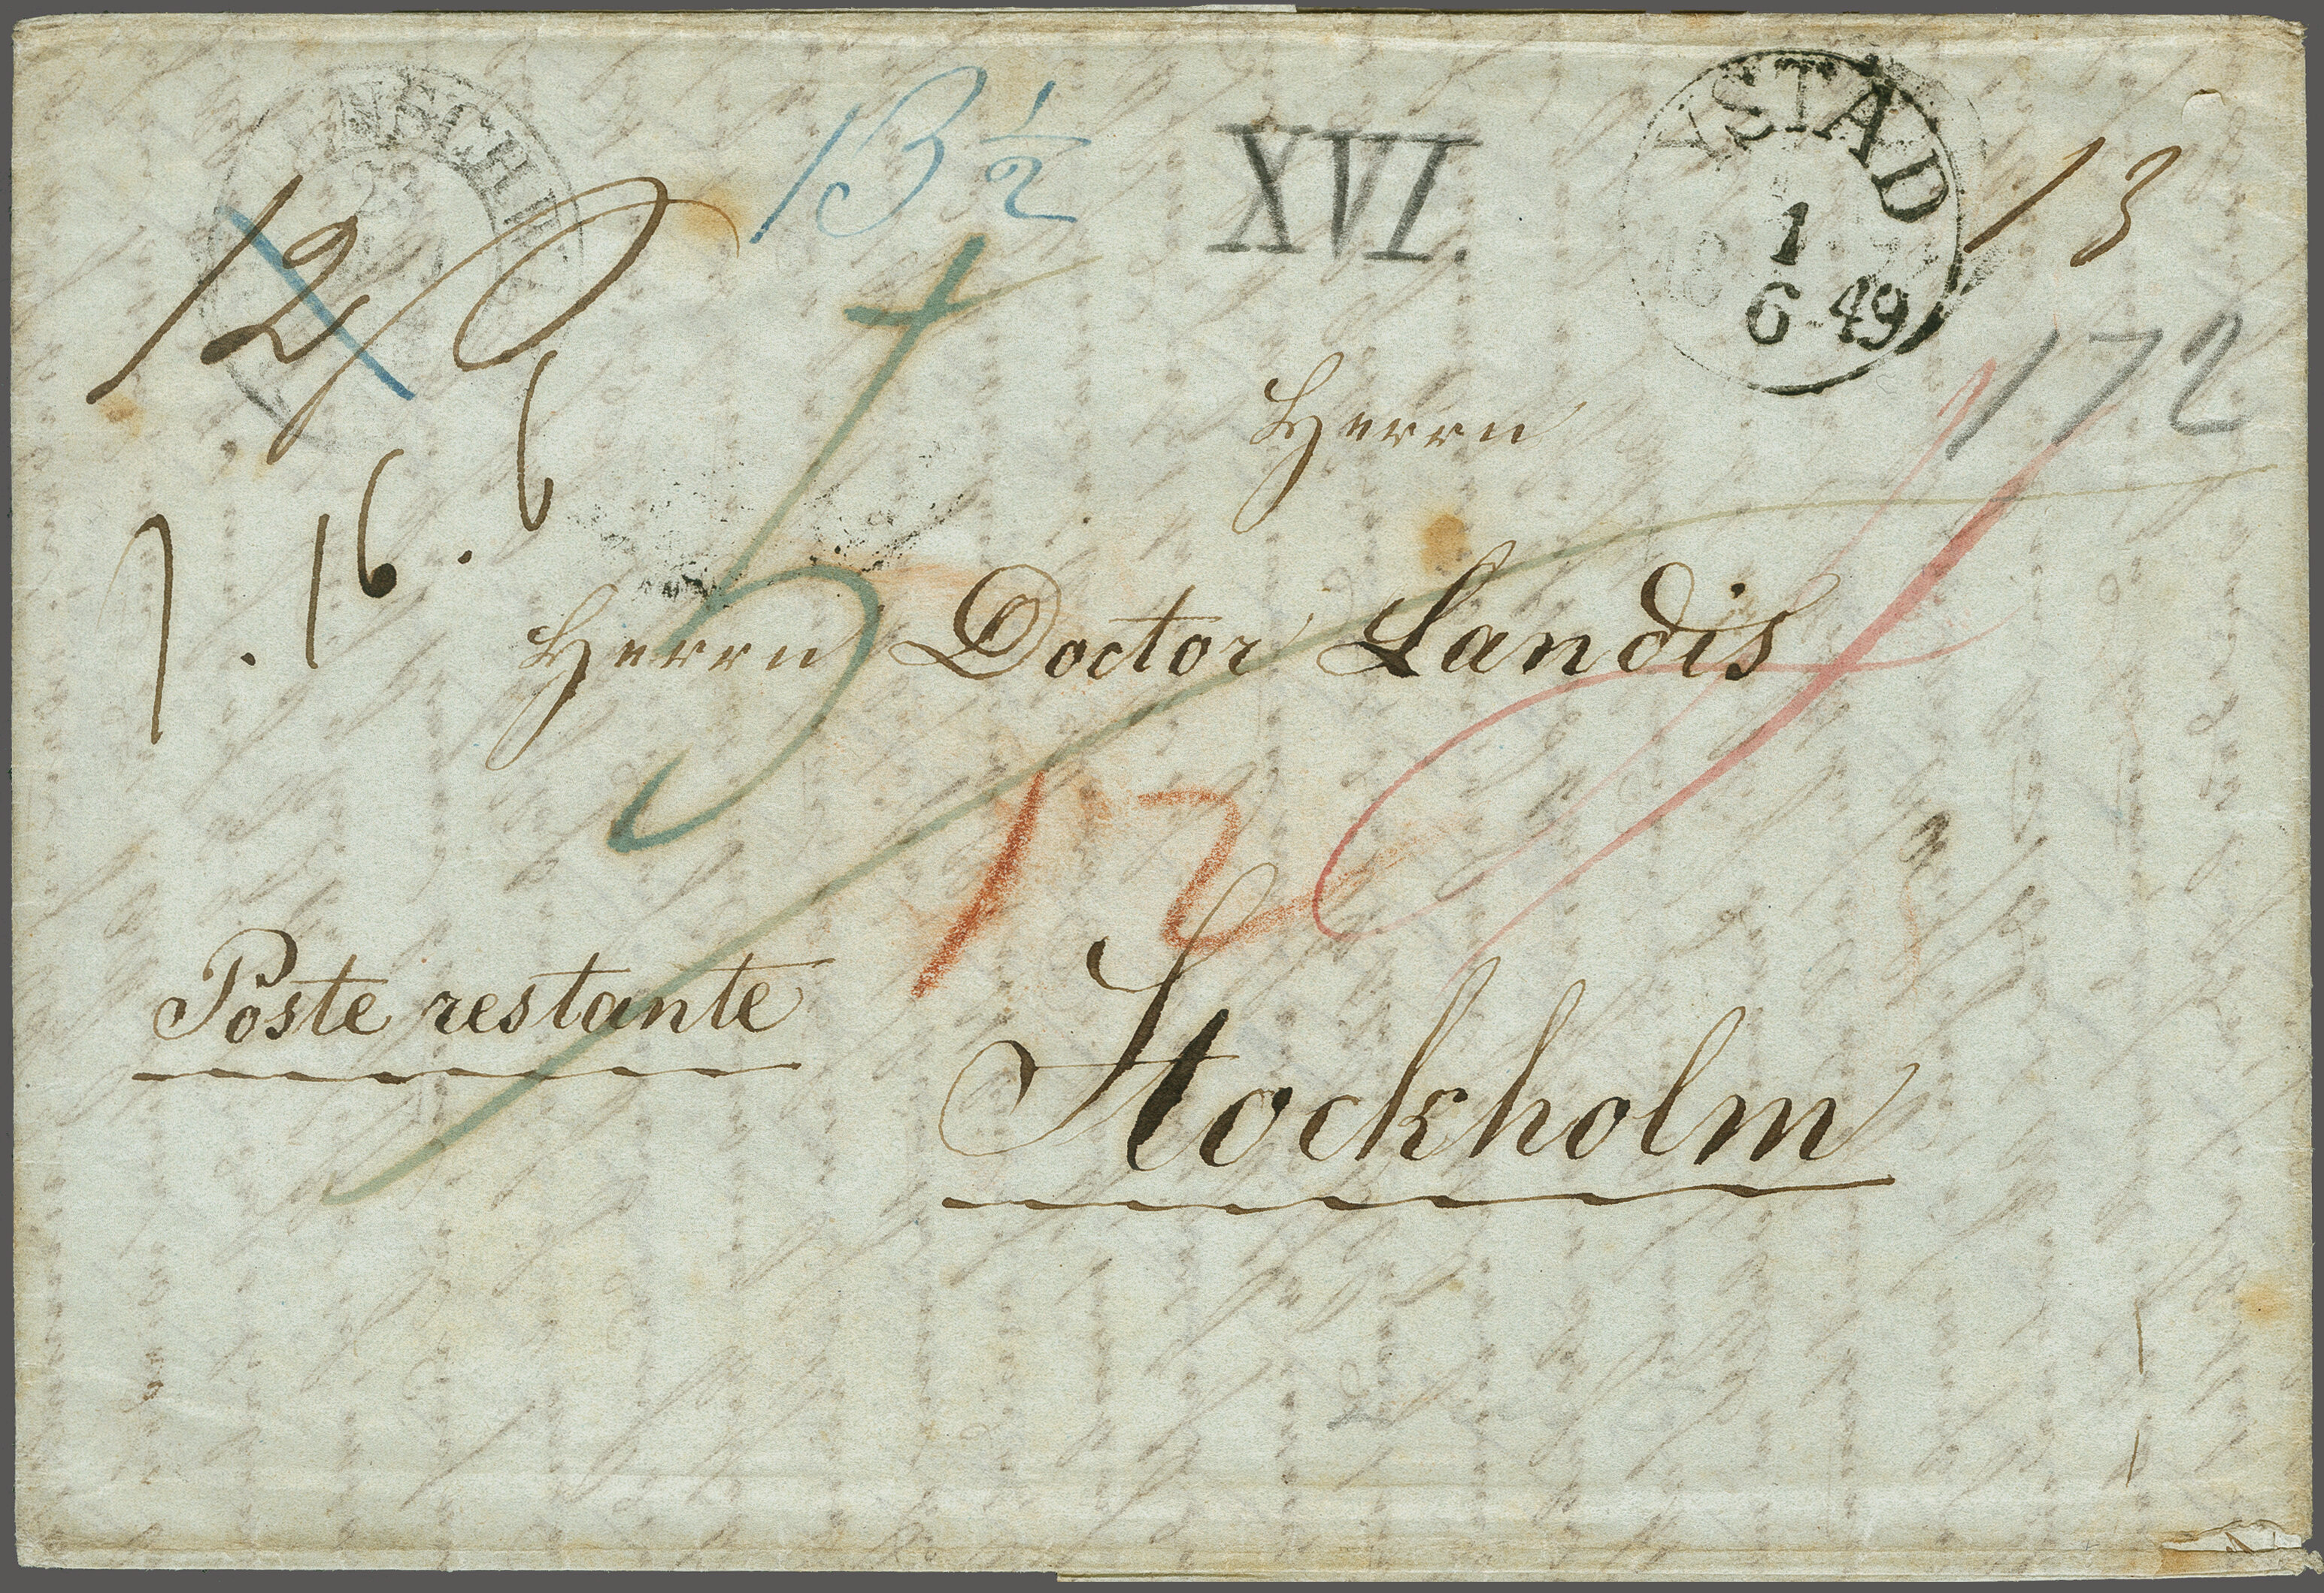 13 1/2
XVI.
YSTAD
1
6 49
13
12
172
6
1. 16.
Herrn
Herrn Doctor Landis
12
Poste restante
Stockholm